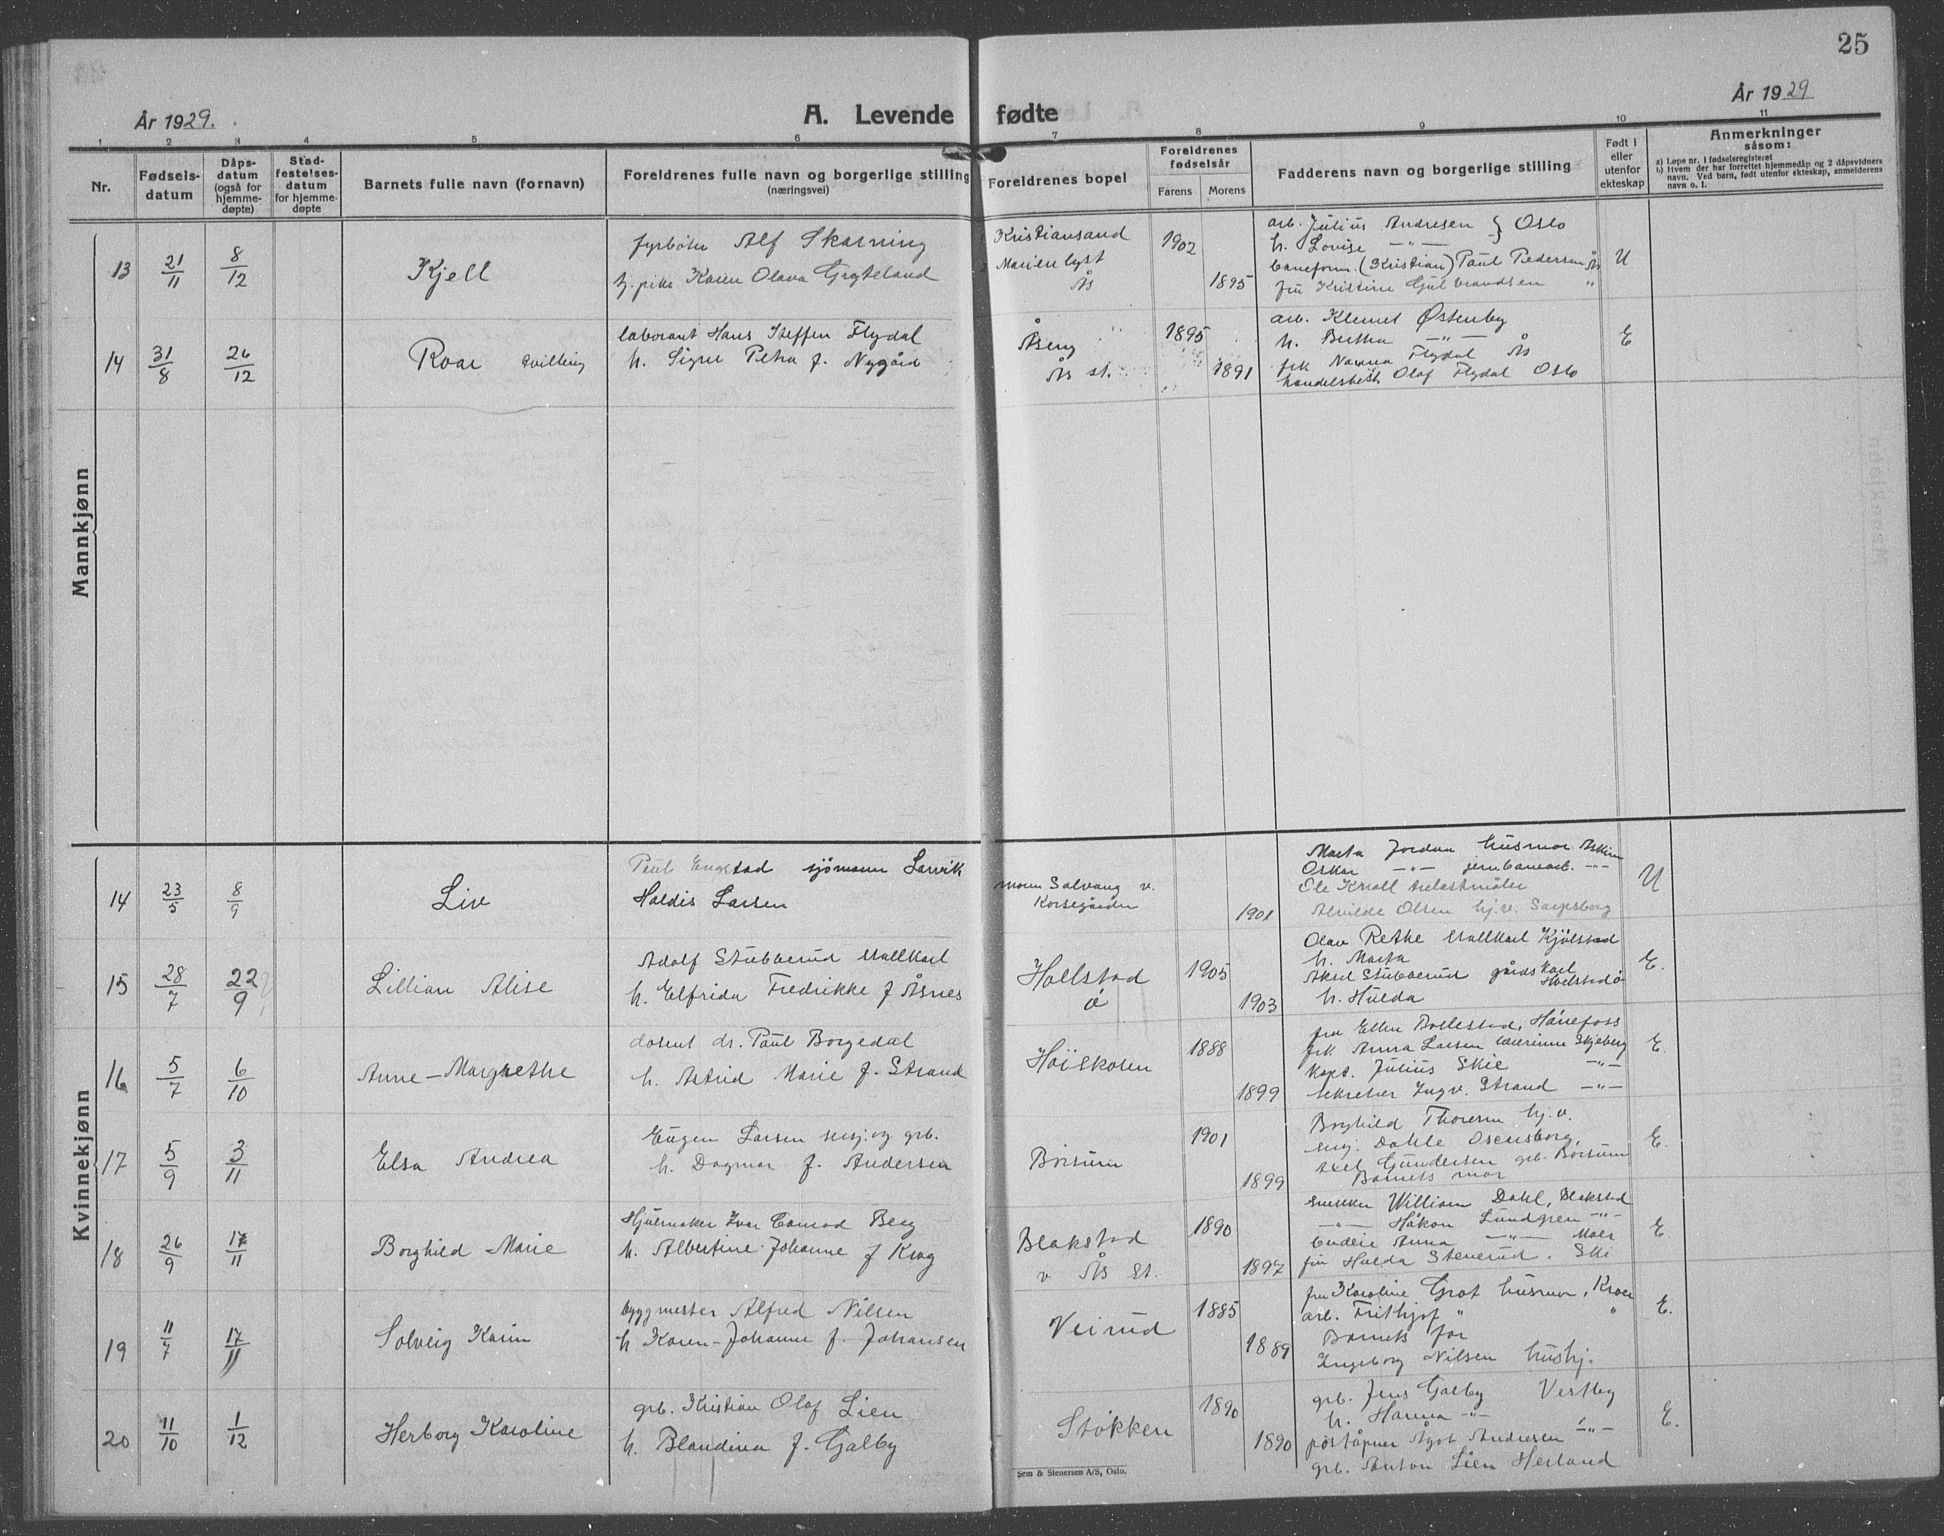 25
År 1929.
A. Levende fødte
År 1929
1 2 3 4 5 6 7 8 9 10 11
Nr.
Fødsels-
datum
Dåps-
datum
(også for
hjemme-
døpte)
Stad-
festelses-
datum
for hjemme-
døpte
Barnets fulle navn (fornavn)
Foreldrenes fulle navn og borgerlige stilling
(næringsvei)
Foreldrenes bopel
Foreldrenes
fødselsår
Farens Morens
Fadderens navn og borgerlige stilling
Født i
eller
utenfor
ekteskap
Anmerkninger
såsom:
a) Løpe nr. i fødselsregisteret
b) Hvem der har forrettet hjemmedåp og 2 dåpsvidners
navn. Ved barn, født utenfor ekteskap, anmelderens
navn o. l.
Mannkjønn
13 21/11 8/12 Kjell
fyrbøter Alf Skarning
pike Karen Olava Grøteland
Kristiansand
Marienlyst
Ås
1902
1895
arb. Julius Andresen } Oslo
h. Lovise -"-
baneform. (Kristian) Paul Pedersen Ås
fru Kristine Gulbrandsen "
U
14 31/8 26/12 Roar tvilling
laborant Hans Steffen Flydal
h. Signe Petra f. Nygård
Åseng
Ås st.
1895
1891
arb. Klemet Østenby
h. Bertha -"-
frk Nanna Flydal Ås
handelsbest. Olaf Flydal Oslo
E
Kvinnekjønn
14 23/5 8/9 Liv
Paul Engstad sjømann Larvik
Haldis Larsen
moren Solvang v.
Korsegården
1901
Marta Jordan husmor Askim
Oskar -"- jernbanearb. -"-
Ole Kroll
Alvilde Olsen hj.v. Sarpsborg
U
15 28/7 22/9 Lillian Alise
Adolf Stubberud stallkarl
h. Elfrida Fredrikke f Åsnes
Holstad
ø
1905
1903
Olav Rethe stallkarl Kjølstad
h. Marta
Aksel Stubberud gårdskarl
Holstad ø
h. Hulda
E.
16 5/7 6/10 Anne-Margrethe
dosent dr. Paul Borgedal
h. Astrid Marie f. Strand
Høiskolen
1888
1899
fru Ellen Bollestad, Hønefoss
frk. Anna Larsen lærerinne Skjeberg
kapt. Julius Skie -"-
sekretær Ingv. Strand -"-
E.
17 5/9 3/11 Elsa Andrea
Eugen Larsen sersj. og grb.
h. Dagmar f. Andersen
Borsum
1901
1899
Borghild Thoresen hj.v.
sersj. Dahle Oscarsborg,
Axel Gundersen grb. Borsum
Barnets mor
E.
18 26/9 17/11 Borghild Marie
Hjulmaker Ivar Conrad Berg
h. Albertine Johanne f Krog
Blakstad
v Ås st.
1890
1897
snekker William Dahl, Blakstad
-"- Håkon Lundgren -"-
budeie Anna -"- Moer
fru Hulda Stenerud. Ski
E
19 11/7 17/11 Solveig Karin
byggmester Alfred Nilsen
h. Karen-Johanne f. Johansen
Veirud
1885
1889
fru Karoline Grot husmor, Kroer
arb. Frithjof " "
Barnets far
Ingeborg Nilsen hushj.
E.
20 11/10 1/12 Herborg Karoline
grb. Kristian Olaf Lien
h. Blandina f. Galby
Støkken
1890
1890
grb. Jens Galby Vestby
h. Hanna -"-
poståpner Ågot Andresen -"-
grb. Anton Lien Herland
E.
Sem & Stenersen A/S, Oslo.